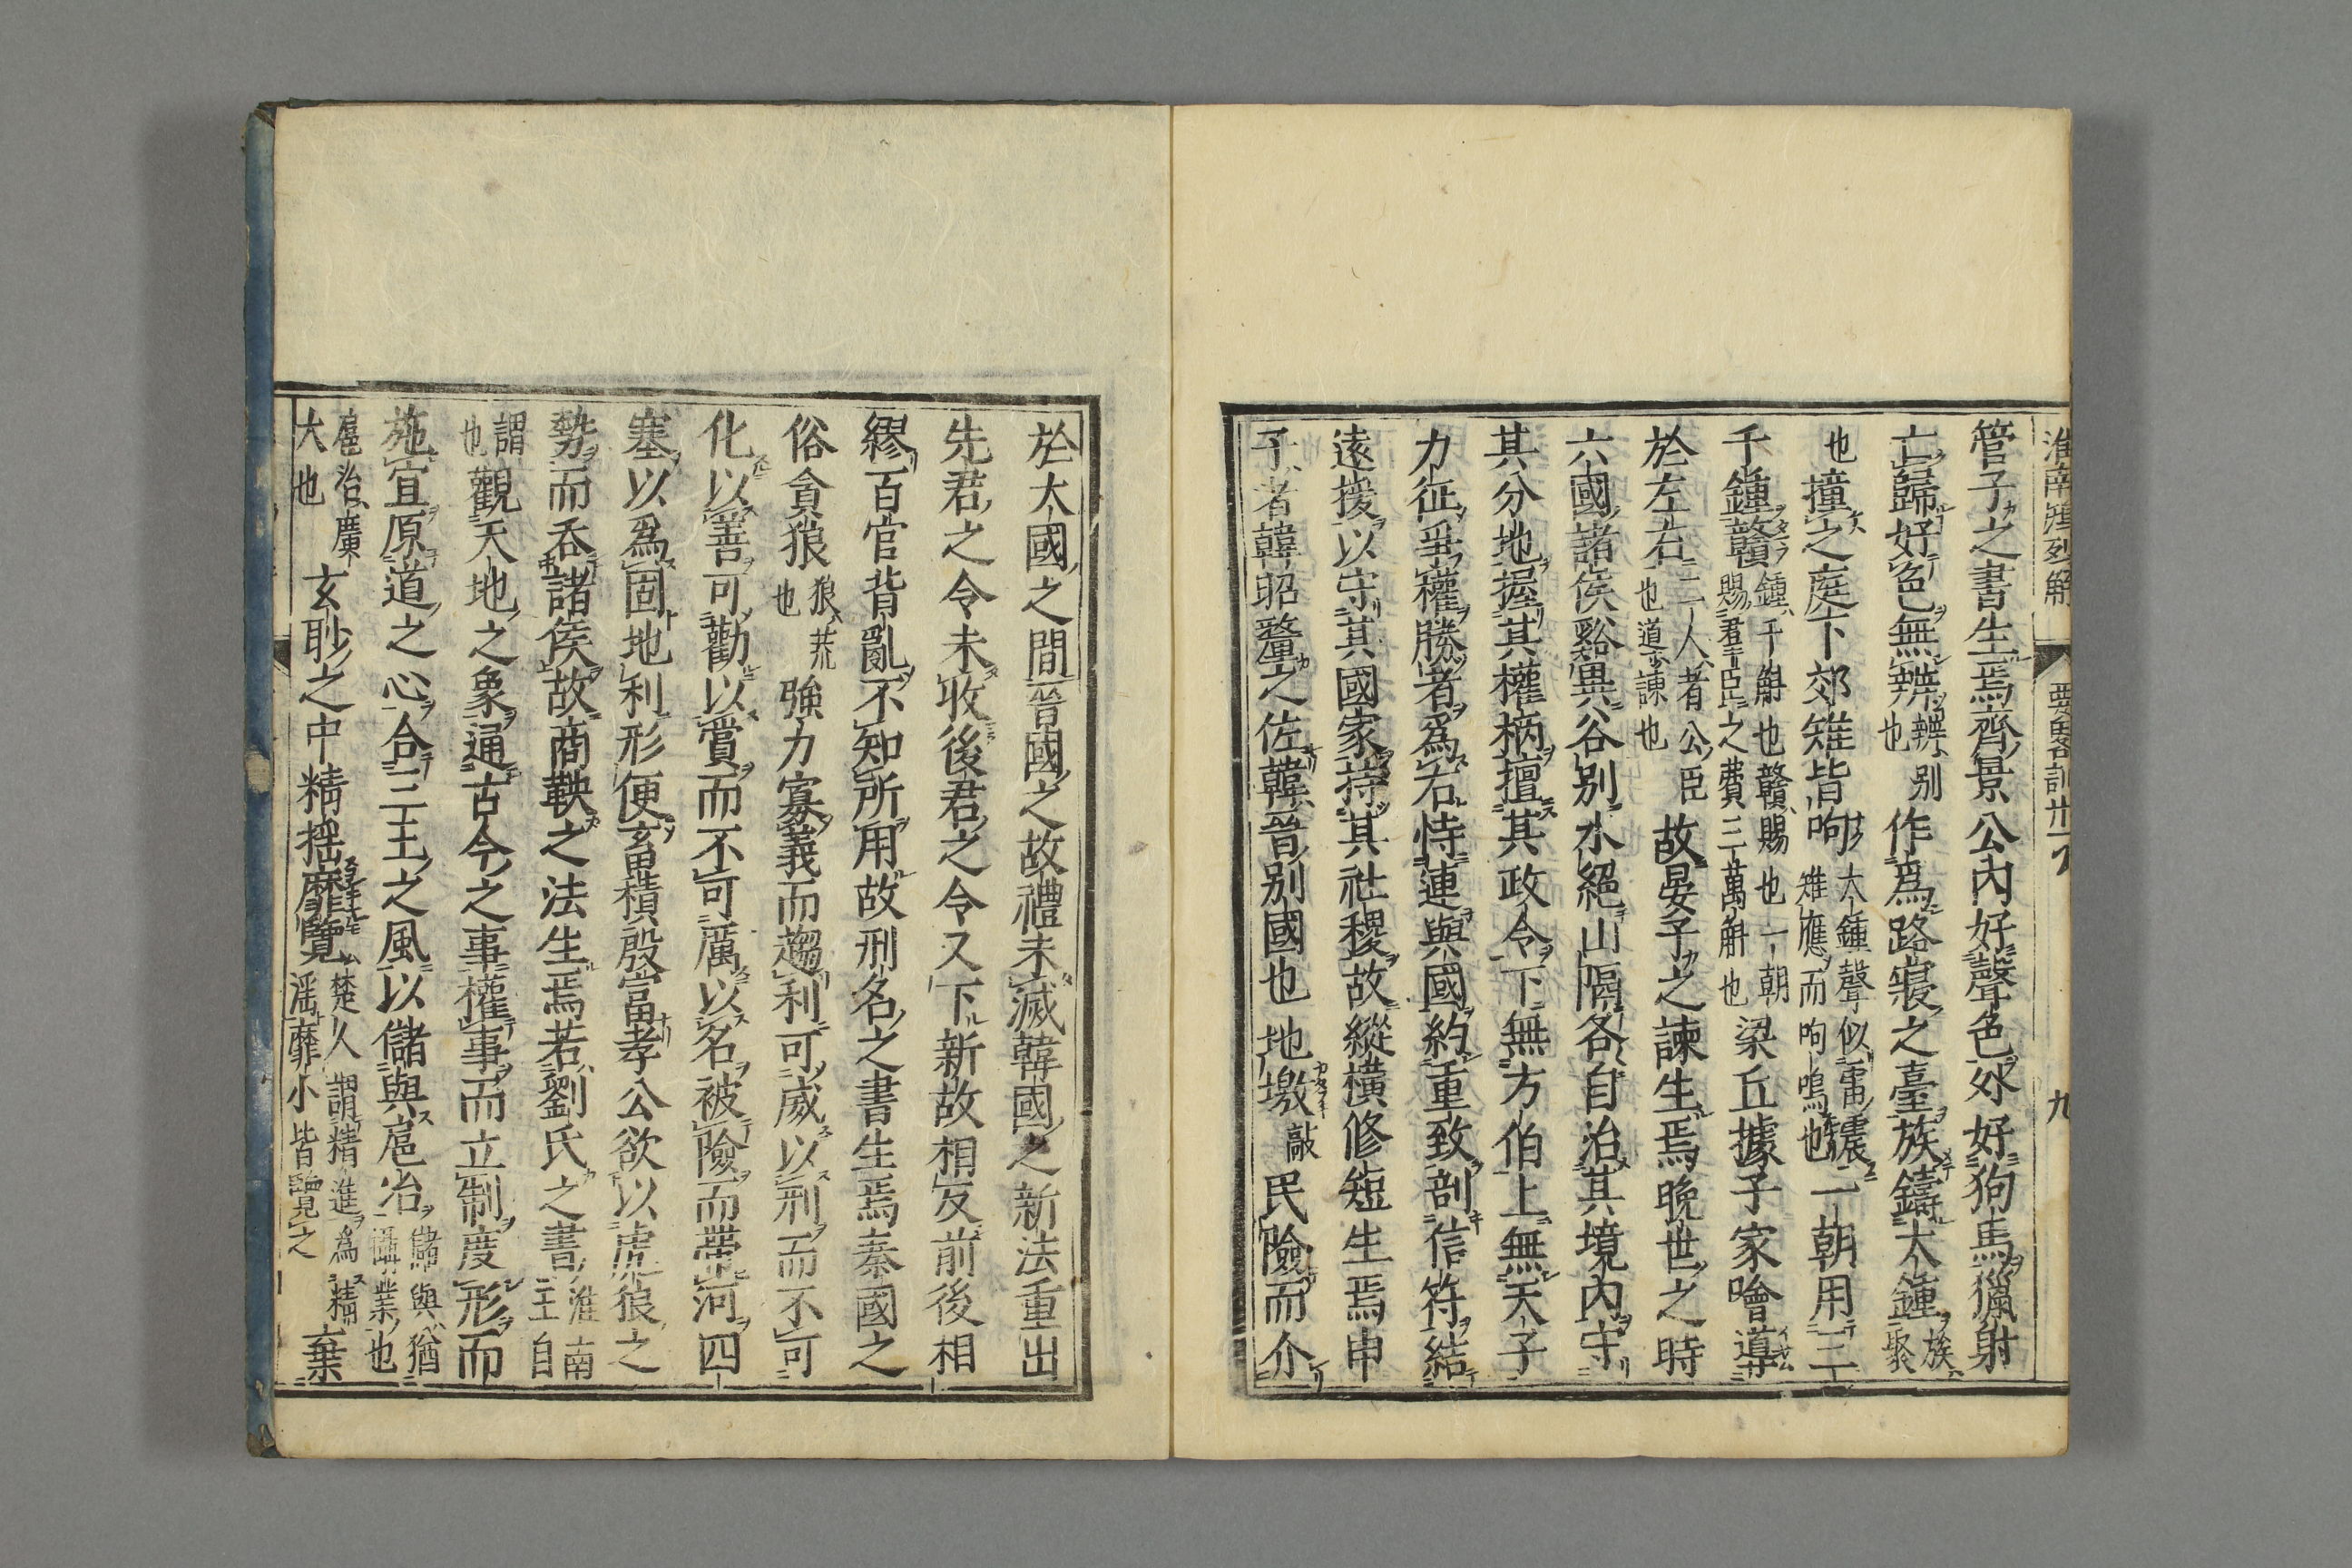 淮南鴻烈解 要略訓廿一 九
管子之書生焉齊景公內好聲色外好狗馬獵射
亡歸好色無辨辨別也作爲路寢之臺族鑄大鍾族聚
也撞之庭下郊雉皆呴大鍾聲似雷震雉應而呴鳴也一朝用三
千鍾贛鍾千斛也贛賜也一朝賜羣臣之費三萬斛也梁丘據子家噲導
於左右二人者公臣也道諛也故晏子之諫生焉晚世之時
六國諸侯谿異谷別水絕山隔各自治其境內守
其分地握其權柄擅其政令下無方伯上無天子
力征爭權勝者爲右恃連與國約重致剖信符結
遠援以守其國家持其社稷故縱橫修短生焉申
子者韓昭釐之佐韓晉別國也地墩敲民險而介
於大國之間晉國之故禮未滅韓國之新法重出
先君之令未收後君之令又下新故相反前後相
繆百官背亂不知所用故刑名之書生焉秦國之
俗貪狼狼荒也強力寡義而趨利可威以刑而不可
化以善可勸以賞而不可厲以名被險而帶河四
塞以爲固地利形便畜積殷富孝公欲以虎狼之
勢而吞諸侯故商鞅之法生焉若劉氏之書淮南王自
謂也觀天地之象通古今之事權事而立制度形而
施宜原道之心合三王之風以儲與扈冶儲與猶攝業也
扈冶廣大也玄眇之中精搖靡覽楚人謂精進爲精搖靡小皆覽之棄